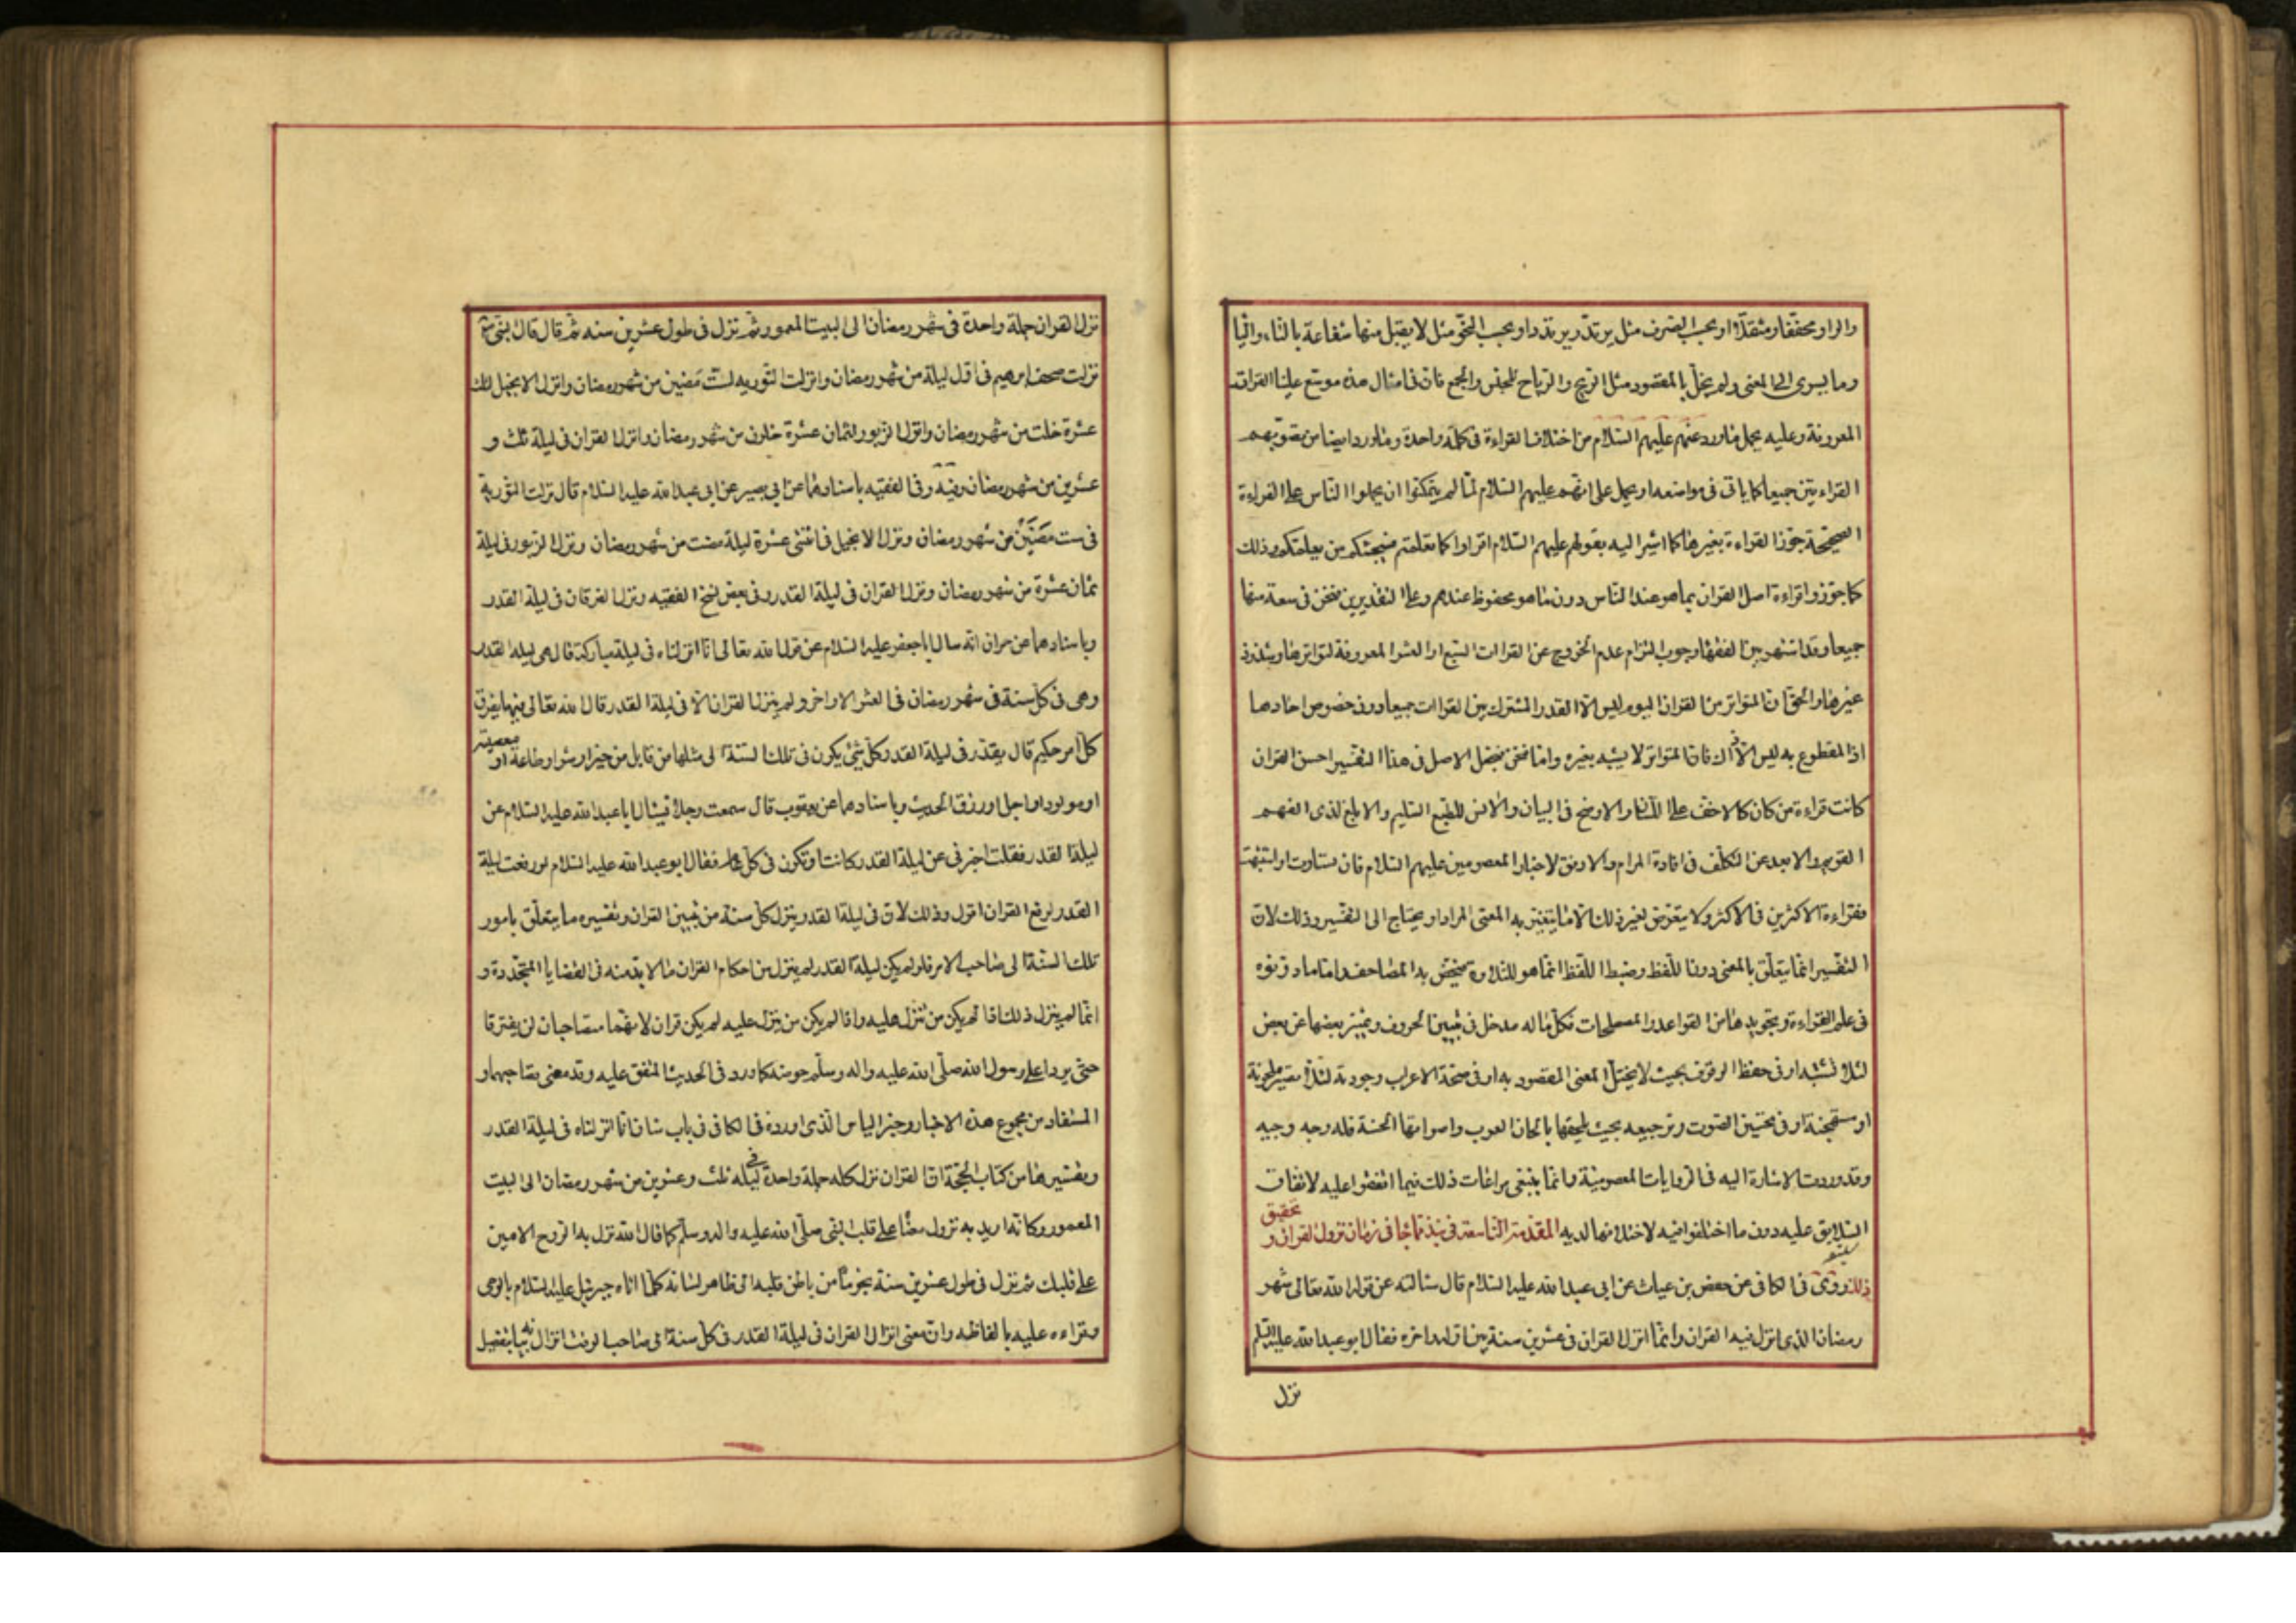 والواو مخففا ومثقلا او بحسب الصرف مثل يرتد ويرتدد او بحسب النحو مثل لا يقبل منها شفاعة بالتاء والياء
وما يسرى الى المعنى ولم يخل بالمقصود مثل الريح والرياح للجنس والجمع فان فى امثال هذه موسع علينا القراءات
المعروفة وعليه يحمل ما ورد عنهم عليهم السلام من اختلاف القراءة فى كلمة واحدة وما ورد ايضا من تصويبهم
القراءتين جميعا كما ياتى فى مواضعه او يحمل على انهم عليهم السلام لما لم يتمكنوا ان يحملوا الناس على القراءة
الصحيحة جوزوا القراءة بغيرها كما اشير اليه بقولهم عليهم السلام اقراوا كما تعلمتم فسيجئكم من يعلمكم وذلك
كما جوزوا قراءة اصل القران بما هو عند الناس دون ما هو محفوظ عندهم وعلى التقديرين فنحن فى سعة منها
جميعا وقد اشتهر بين الفقهاء وجوب التزام عدم الخروج عن القراات السبع او العشر المعروفة لتواترها وشذوذ
غيرها والحق ان المتواتر من القران اليوم ليس الا القدر المشترك بين القراات جميعا دون خصوص احادها
اذ المقطوع به ليس الا ذاك فان المتواتر لا يشبه بغيره واما نحن نجعل الاصل فى هذا التفسير احسن القراات
كانت قراءة من كان كالاخف على اللسان والاوضح فى البيان والانس للطبع السليم والابلغ لذى الفهم
القويم والابعد عن التكلف فى افادة المرام والاوفق لاخبار المعصومين عليهم السلام فان تساوت او اشتبهت
فقراءة الاكثرين فى الاكثر ولا نتعرض لغير ذلك الا ما يتغير به المعنى المراد او يحتاج الى التفسير وذلك لان
التفسير انما يتعلق بالمعنى دون اللفظ وضبط اللفظ انما هو للتلاوة فيخص به المصاحف واما ما دونوه
فى علم القراءة وتجويدها من القواعد والمصطلحات فكل ما له مدخل فى تبيين الحروف وتمييز بعضها عن بعض
لئلا تشتبه او فى حفظ الوقوف بحيث لا يختل المعنى المقصود به او فى صحة الاعراب وجودته لئلا تصير ملحونة
او مستهجنة او فى تحسين الصوت وترجيعه بحيث يلحقها بالحان العرب واصواتها الحسنة فله وجه وجيه
وقد وردت الاشارة اليه فى الروايات المعصومية وانما ينبغى مراعات ذلك فيما اتفقوا عليه لاتفاق
السلايق عليه دون ما اختلفوا فيه لاختلافها لديه المقدمة التاسعة فى نبذ مما جاء فى زمان نزول القران وتحقيق
ذلك روى فى الكافى عن حفص بن غياث عن ابى عبد الله عليه السلام قال سالته عن قول الله تعالى شهر
رمضان الذى انزل فيه القران وانما انزل القران فى عشرين سنة بين اوله واخره فقال ابو عبد الله عليه السلم
نزل
نزل القران جملة واحدة فى شهر رمضان الى البيت المعمور ثم نزل فى طول عشرين سنه ثم قال قال النبى ص
نزلت صحف ابرهيم فى اول ليلة من شهر رمضان وانزلت التوريه لست مضين من شهر رمضان وانزل الانجيل لثلث
عشرة خلت من شهر رمضان وانزل الزبور لثمان عشرة خلون من شهر رمضان وانزل القران فى ليلة ثلث و
عشرين من شهر رمضان وفيه وفى الفقيه باسنادهما عن ابى بصير عن ابى عبد الله عليه السلام قال نزلت التورية
فى ست مضين من شهر رمضان ونزل الانجيل فى اثنتى عشرة ليلة مضت من شهر رمضان ونزل الزبور فى ليلة
ثمان عشرة من شهر رمضان ونزل القران فى ليلة القدر وفى بعض نسخ الفقيه ونزل الفرقان فى ليلة القدر
وباسنادهما عن حمران انه سال ابا جعفر عليه السلام عن قول الله تعالى انا انزلناه فى ليلة مباركة قال هى ليلة القدر
وهى فى كل سنة فى شهر رمضان فى العشر الاواخر ولم ينزل القران الا فى ليلة القدر قال الله تعالى فيها يفرق
كل امر حكيم قال يقدر فى ليلة القدر كل شئ يكون فى تلك السنة الى مثلها من قابل من خير او شر او طاعة او معصية
او مولود او اجل او رزق الحديث وباسنادهما عن يعقوب قال سمعت رجلا يسال ابا عبد الله عليه السلام عن
ليلة القدر فقلت اخبرنى عن ليلة القدر كانت او تكون فى كل عام فقال ابو عبد الله عليه السلام لو رفعت ليلة
القدر لرفع القران اقول وذلك لان فى ليلة القدر ينزل كل سنة من تبيين القران وتفسيره ما يتعلق بامور
تلك السنة الى صاحب الامر فلو لم يكن ليلة القدر لم ينزل من احكام القران ما لا بد منه فى القضايا المتجددة و
انما لم ينزل ذلك اذا لم يكن من تنزل عليه واذا لم يكن من ينزل عليه لم يكن قران لانهما متصاحبان لن يفترقا
حتى يردا على رسول الله صلى الله عليه واله وسلم حوضه كما ورد فى الحديث المتفق عليه وقد معنى تصاحبهما و
المستفاد من مجموع هذه الاخبار وخبر الياس الذى اورده فى الكافى فى باب شان انا انزلناه فى ليلة القدر
وتفسيرها من كتاب الحجة ان القران نزل كله جملة واحدة فى ليلة ثلث وعشرين من شهر رمضان الى البيت
المعمور وكانه اريد به نزول معناه على قلب النبى صلى الله عليه واله وسلم كما قال الله نزل به الروح الامين
على قلبك ثم نزل فى طول عشرين سنة نجوما من باطن قلبه الى ظاهر لسانه كلما اتاه جبرئيل عليه السلام بالوحى
وقراءه عليه بالفاظه وان معنى انزال القران فى ليلة القدر فى كل سنة الى صاحب الوقت انزال بيانه بتفصيل